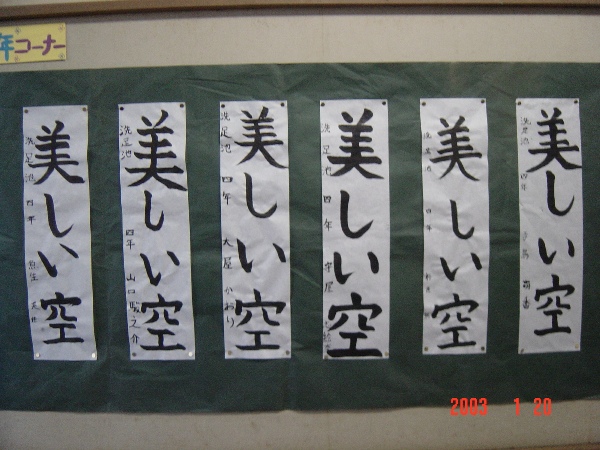 年コーナー
美しい空
洗足池 四年
美しい空
洗足池 四年
美しい空
洗足池 四年 守屋
美しい空
洗足池 四年 大屋 かおり
美しい空
洗足池 四年 山口 之介
美しい空
洗足池 四年
2003 1 20